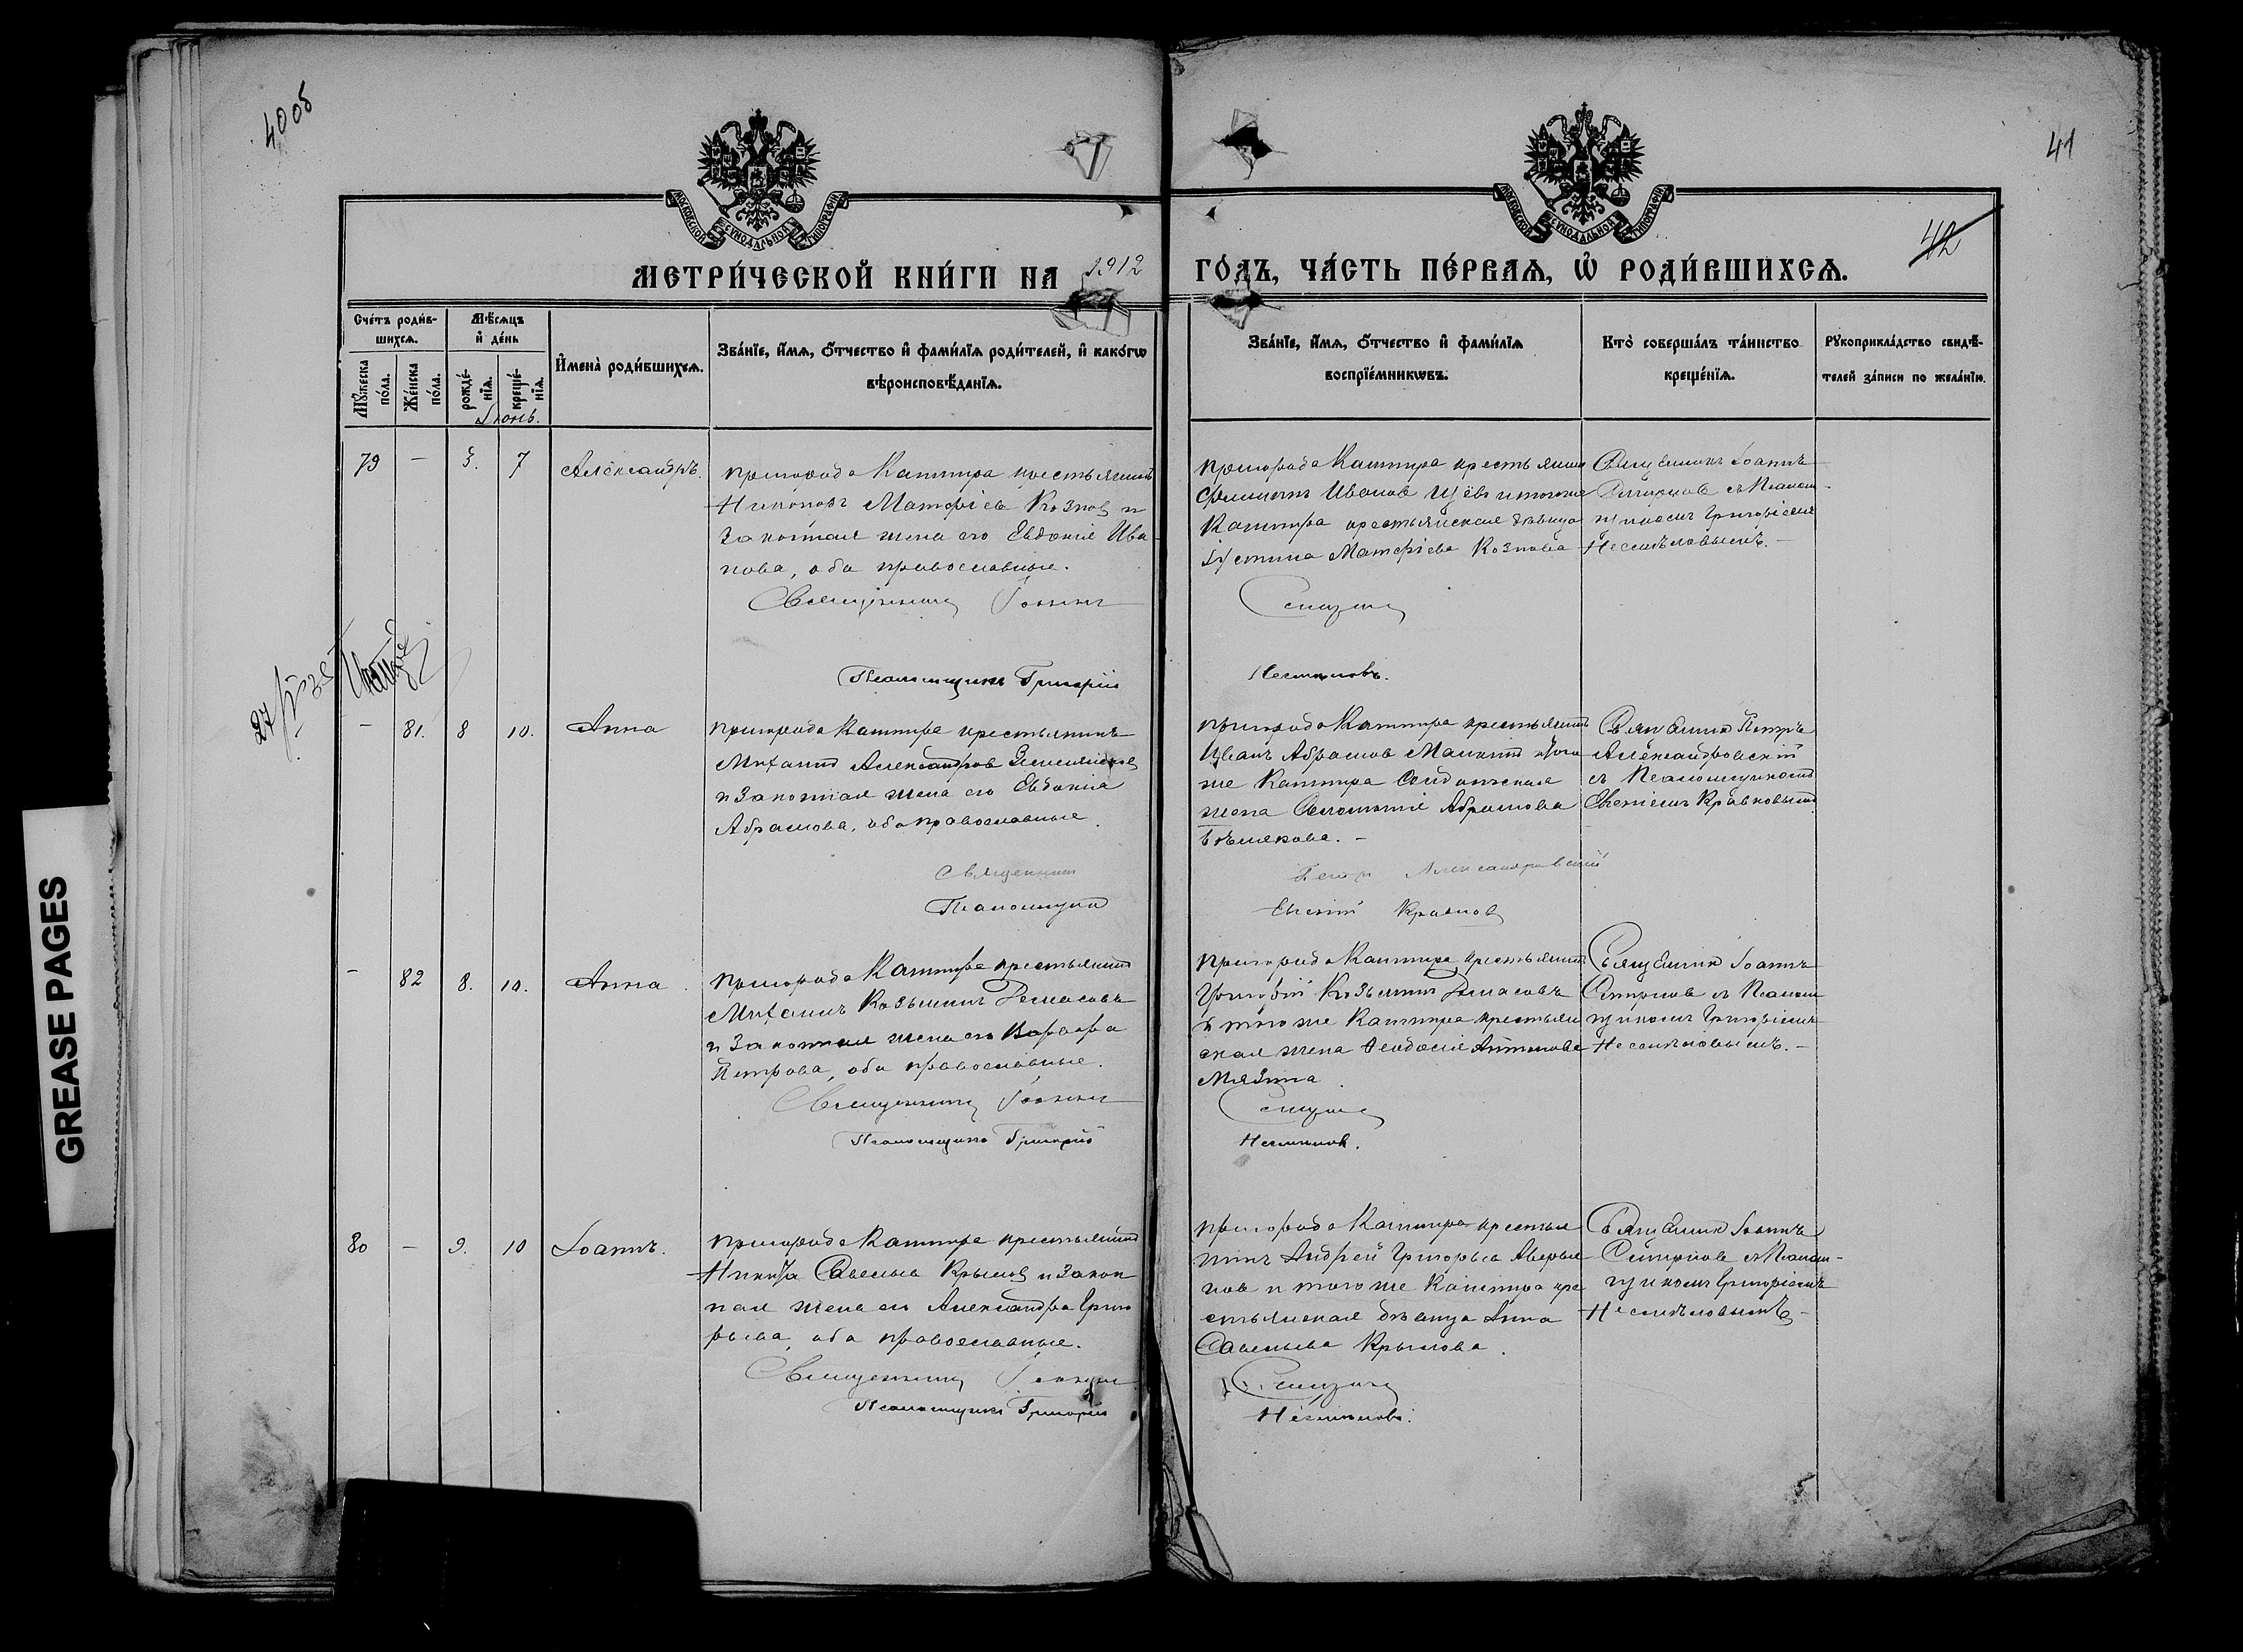 40об
41
42
МОСКОВСКОЙ СѴНОДАЛЬНОЙ ТИПОГРАФІИ
МОСКОВСКОЙ СѴНОДАЛЬНОЙ ТИПОГРАФІИ
МЕТРИ́ЧЕСКОЙ КНИ́ГИ НА 1912 ГО́ДЪ, ЧА́СТЬ ПЕ́РВАѦ, Ѡ҆ РОДИ́ВШИХСѦ.
Сче́тъ роди́в-
шихсѧ.
Мꙋ́жеска
по́ла.
Же́нска
по́ла.
Мѣ́сѧцъ
и҆ де́нь
рожде́-
нїѧ.
креще́-
нїѧ.
Іюнь.
И҆мена̀ роди́вшихсѧ.
Зва́нїе, и҆́мѧ, ѻ҆́тчество и҆ фами́лїѧ роди́телей, и҆ како́гѡ
вѣроисповѣ́данїѧ.
Зва́нїе, и҆́мѧ, ѻ҆́тчество и҆ фами́лїѧ
воспрїе́мникѡвъ.
Кто̀ соверша́лъ та́инство
креще́нїѧ.
Рꙋкоприкла́дство свидѣ́-
телей за́писи по жела́нїю.
79 — 7 Александръ.
пригорода Каштира крестьянинъ
Никоноръ Матфіевъ Козновъ и
законная жена его Евдокія Ива-
нова, оба православные.
Священникъ Іоаннъ
Псаломщикъ Григорій
пригорода Каштира крестьянинъ
Иванов и того же
Каштира крестьянская дѣвица
Іустина Матфіева Кознова
Смирновъ
Несмѣловъ.
Священникъ Іоаннъ
Смирновъ съ Псалом-
щикомъ Григоріемъ
Несмѣловымъ.—
— 81. 8 10. Анна
пригорода Каштира крестьянинъ
Михаилъ Александровъ
и законная жена его Евдокія
Абрамова, оба православные.
Священникъ
Псаломщикъ
пригорода Каштира крестьянинъ
Иванъ Абрамовъ и того
же Каштира Солдатская
жена Абрамова
Петръ Александровскій
Евгеній Кравковъ
Священникъ Петръ
Александровскій
съ Псаломщикомъ
Евгеніемъ Кравковымъ
— 82 8. 10. Анна
пригорода Каштира крестьянинъ
Михаилъ Козьминъ
и законная жена его Варвара
Петрова, оба православные.
Священникъ Іоаннъ
Псаломщикъ Григорій
пригорода Каштира крестьянинъ
Григорій Козьминъ
и того же Каштира крестьян
ская жена Ѳеодосія Антонова
Мязина.
Смирновъ
Несмѣловъ.
Священникъ Іоаннъ
Смирновъ съ Псалом
щикомъ Григоріемъ
Несмѣловымъ.—
80 — 9. 10 Іоаннъ.
пригорода Каштира крестьянинъ
Никита Савельевъ Крымовъ и закон
ная жена его Александра Григо
рьева, оба православные.
Священникъ Іоаннъ
Псаломщикъ Григорій
пригорода Каштира крестья
нинъ Андрей Григорьевъ Аверья
новъ и того же Каштира кре
стьянская дѣвица Анна
Савельева Крымова.
Смирновъ
Несмѣловъ.
Священникъ Іоаннъ
Смирновъ съ Псалом-
щикомъ Григоріемъ
Несмѣловымъ—
GREASE PAGES